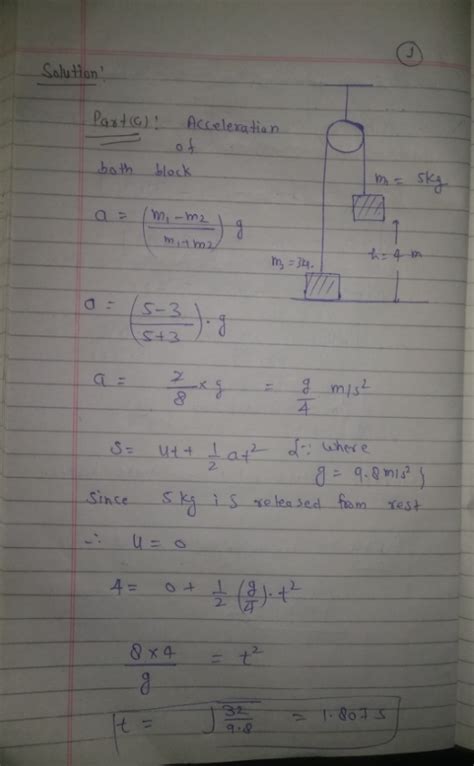 1
Solution:
Part(a): Acceleration
of
both block
m₁ = 5kg
a = ((m₁ - m₂)/(m₁ + m₂)) g
h = 4 m
m₂ = 3kg.
a = ((5 - 3)/(5 + 3)) · g
a = 2/8 × g = g/4 m/s²
S = ut + 1/2 at² {∵ where
g = 9.8 m/s²}
Since 5 kg is released from rest
∴ u = 0
4 = 0 + 1/2 (g/4) · t²
(8 × 4)/g = t²
t = √(32/9.8) = 1.807 s